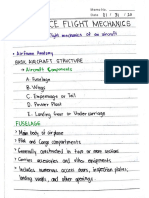 Memo No.
Date 31 / 31 / 20
CE FLIGHT MECHANICS
Flight mechanics of an aircraft
• Airframe Anatomy
BASIC AIRCRAFT STRUCTURE
→ Aircraft Components
A. Fuselage
B. Wings
C. Empennage or Tail
D. Power Plant
E. Landing Gear or Undercarriage
FUSELAGE
* Main body of airplane
* Pilot and Cargo compartments
* Generally constructed in two or more sections
* Carries accessories and other equipment
* Includes numerous access doors, inspection plates,
landing wheels, and other openings